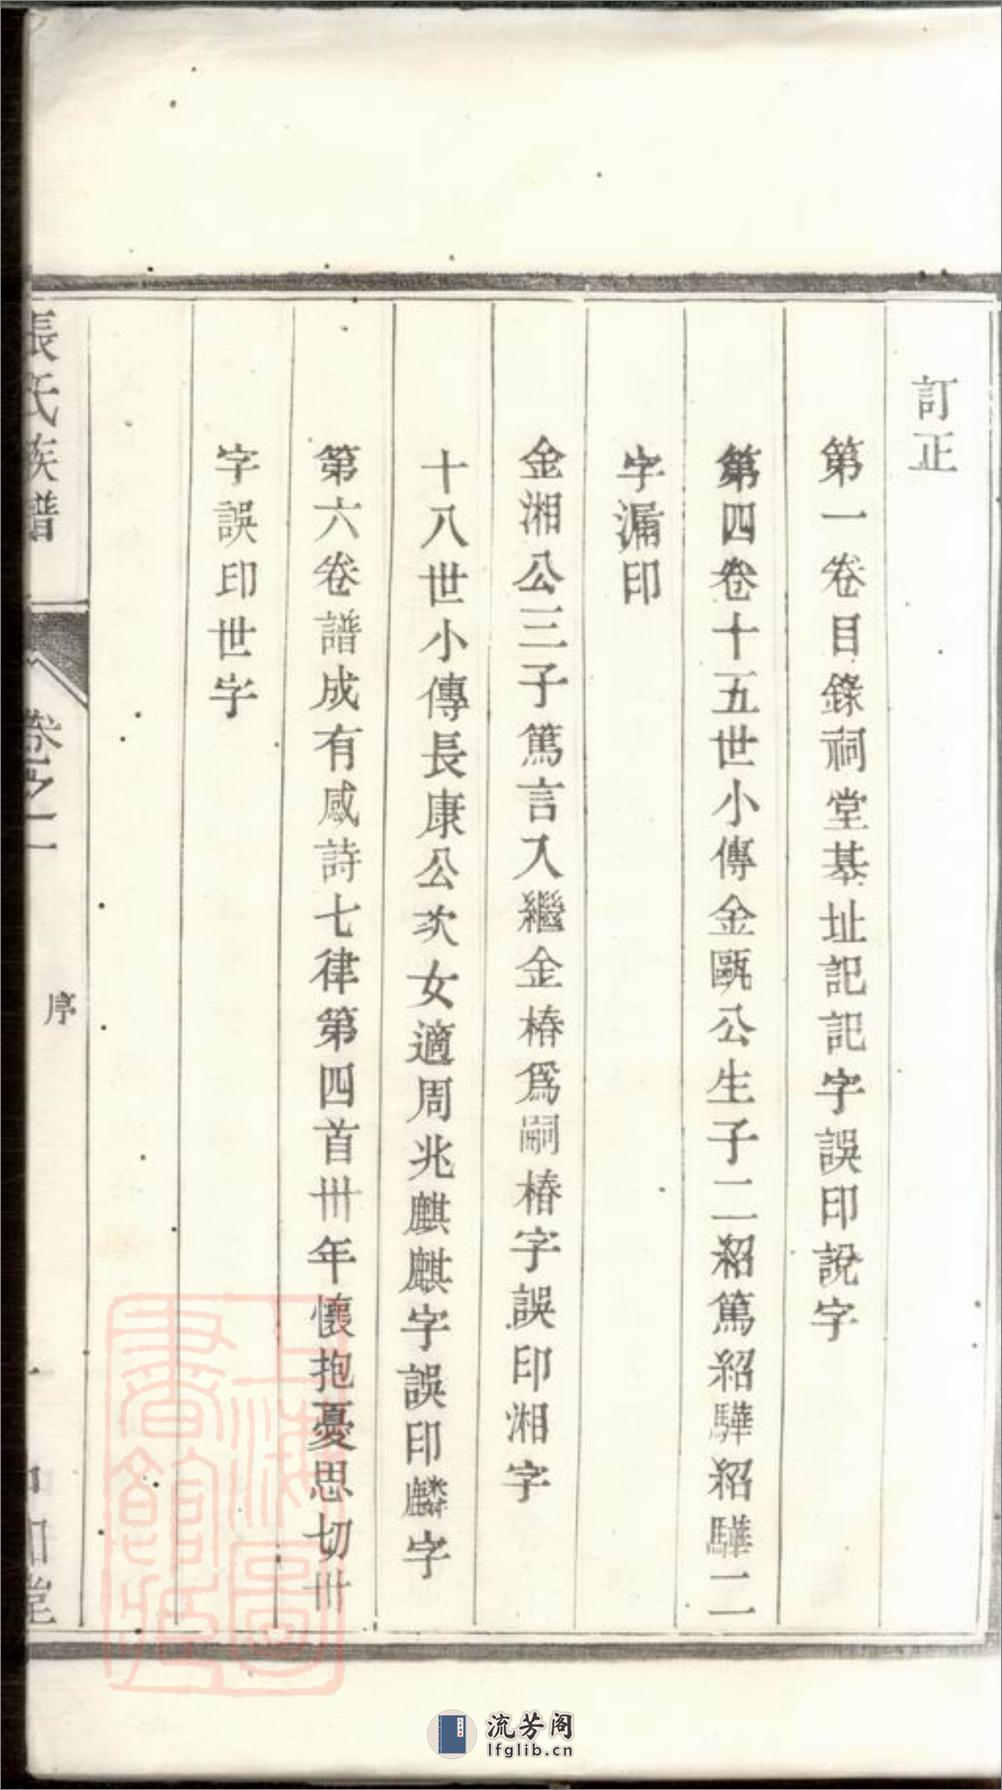 訂正
第一卷目錄祠堂基址記記字誤印說字
第四卷十五世小傳金甌公生子二紹篤紹驊紹驊二
字漏印
金湘公三子篤言入繼金椿爲嗣椿字誤印湘字
十八世小傳長康公次女適周兆麒麒字誤印麟字
第六卷譜成有感詩七律第四首卅年懷抱憂思切卅
字誤印世字
張氏族譜
卷之一
序
一
中和堂
上海圖書館藏
流芳阁
lfglib.cn